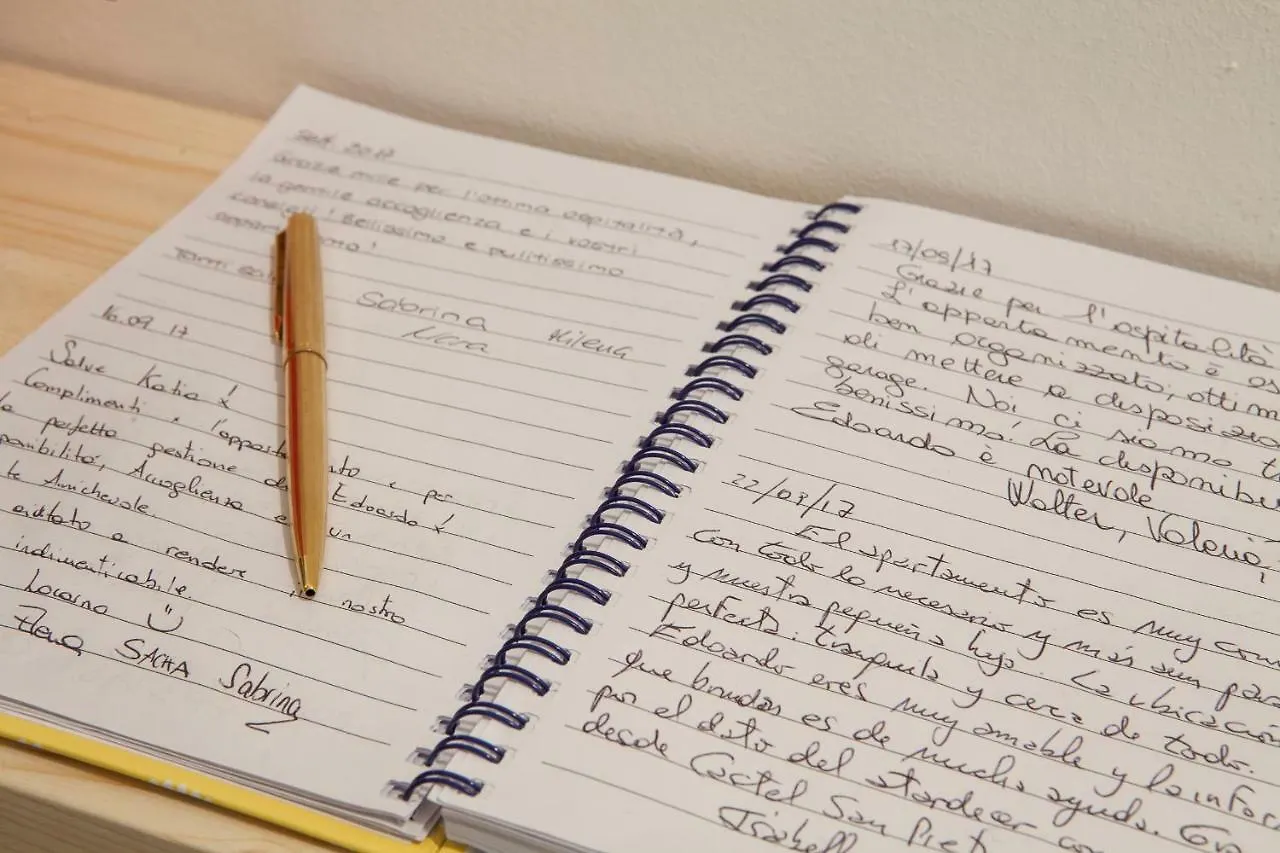 Sett 2017
Grazie mille per l'ottima ospitalità,
la gentile accoglienza e i vostri
consigli! Bellissimo e pulitissimo
Tanti
Sabrina
Milena
16.09 17
Salve Katia!
Complimenti x l'appart nto e per
la perfetta gestione di Edoardo!
Accoglienza e un
te Amichevole
aiutato a rendere il nostro
indimenticabile
Locarno
Elena SACHA Sabrina
17/09/17
Grazie per l'ospitalità
L'appartamento è os
ben organizzato, ottim
di mettere a disposizio
garage. Noi ci siamo t
benissimo! La disponibil
Edoardo è notevole
Walter, Valerio,
22/09/17
El apartamento es muy com
con todo lo necesario y más aun para
y nuestro pequeño hijo. La ubicación
perfecta. tranquilo y cerca de todo.
Edoardo eres muy amable y la infor
que brindas es de mucha ayuda. Gra
por el dato del atardecer
desde Castel San Piet
Isabell